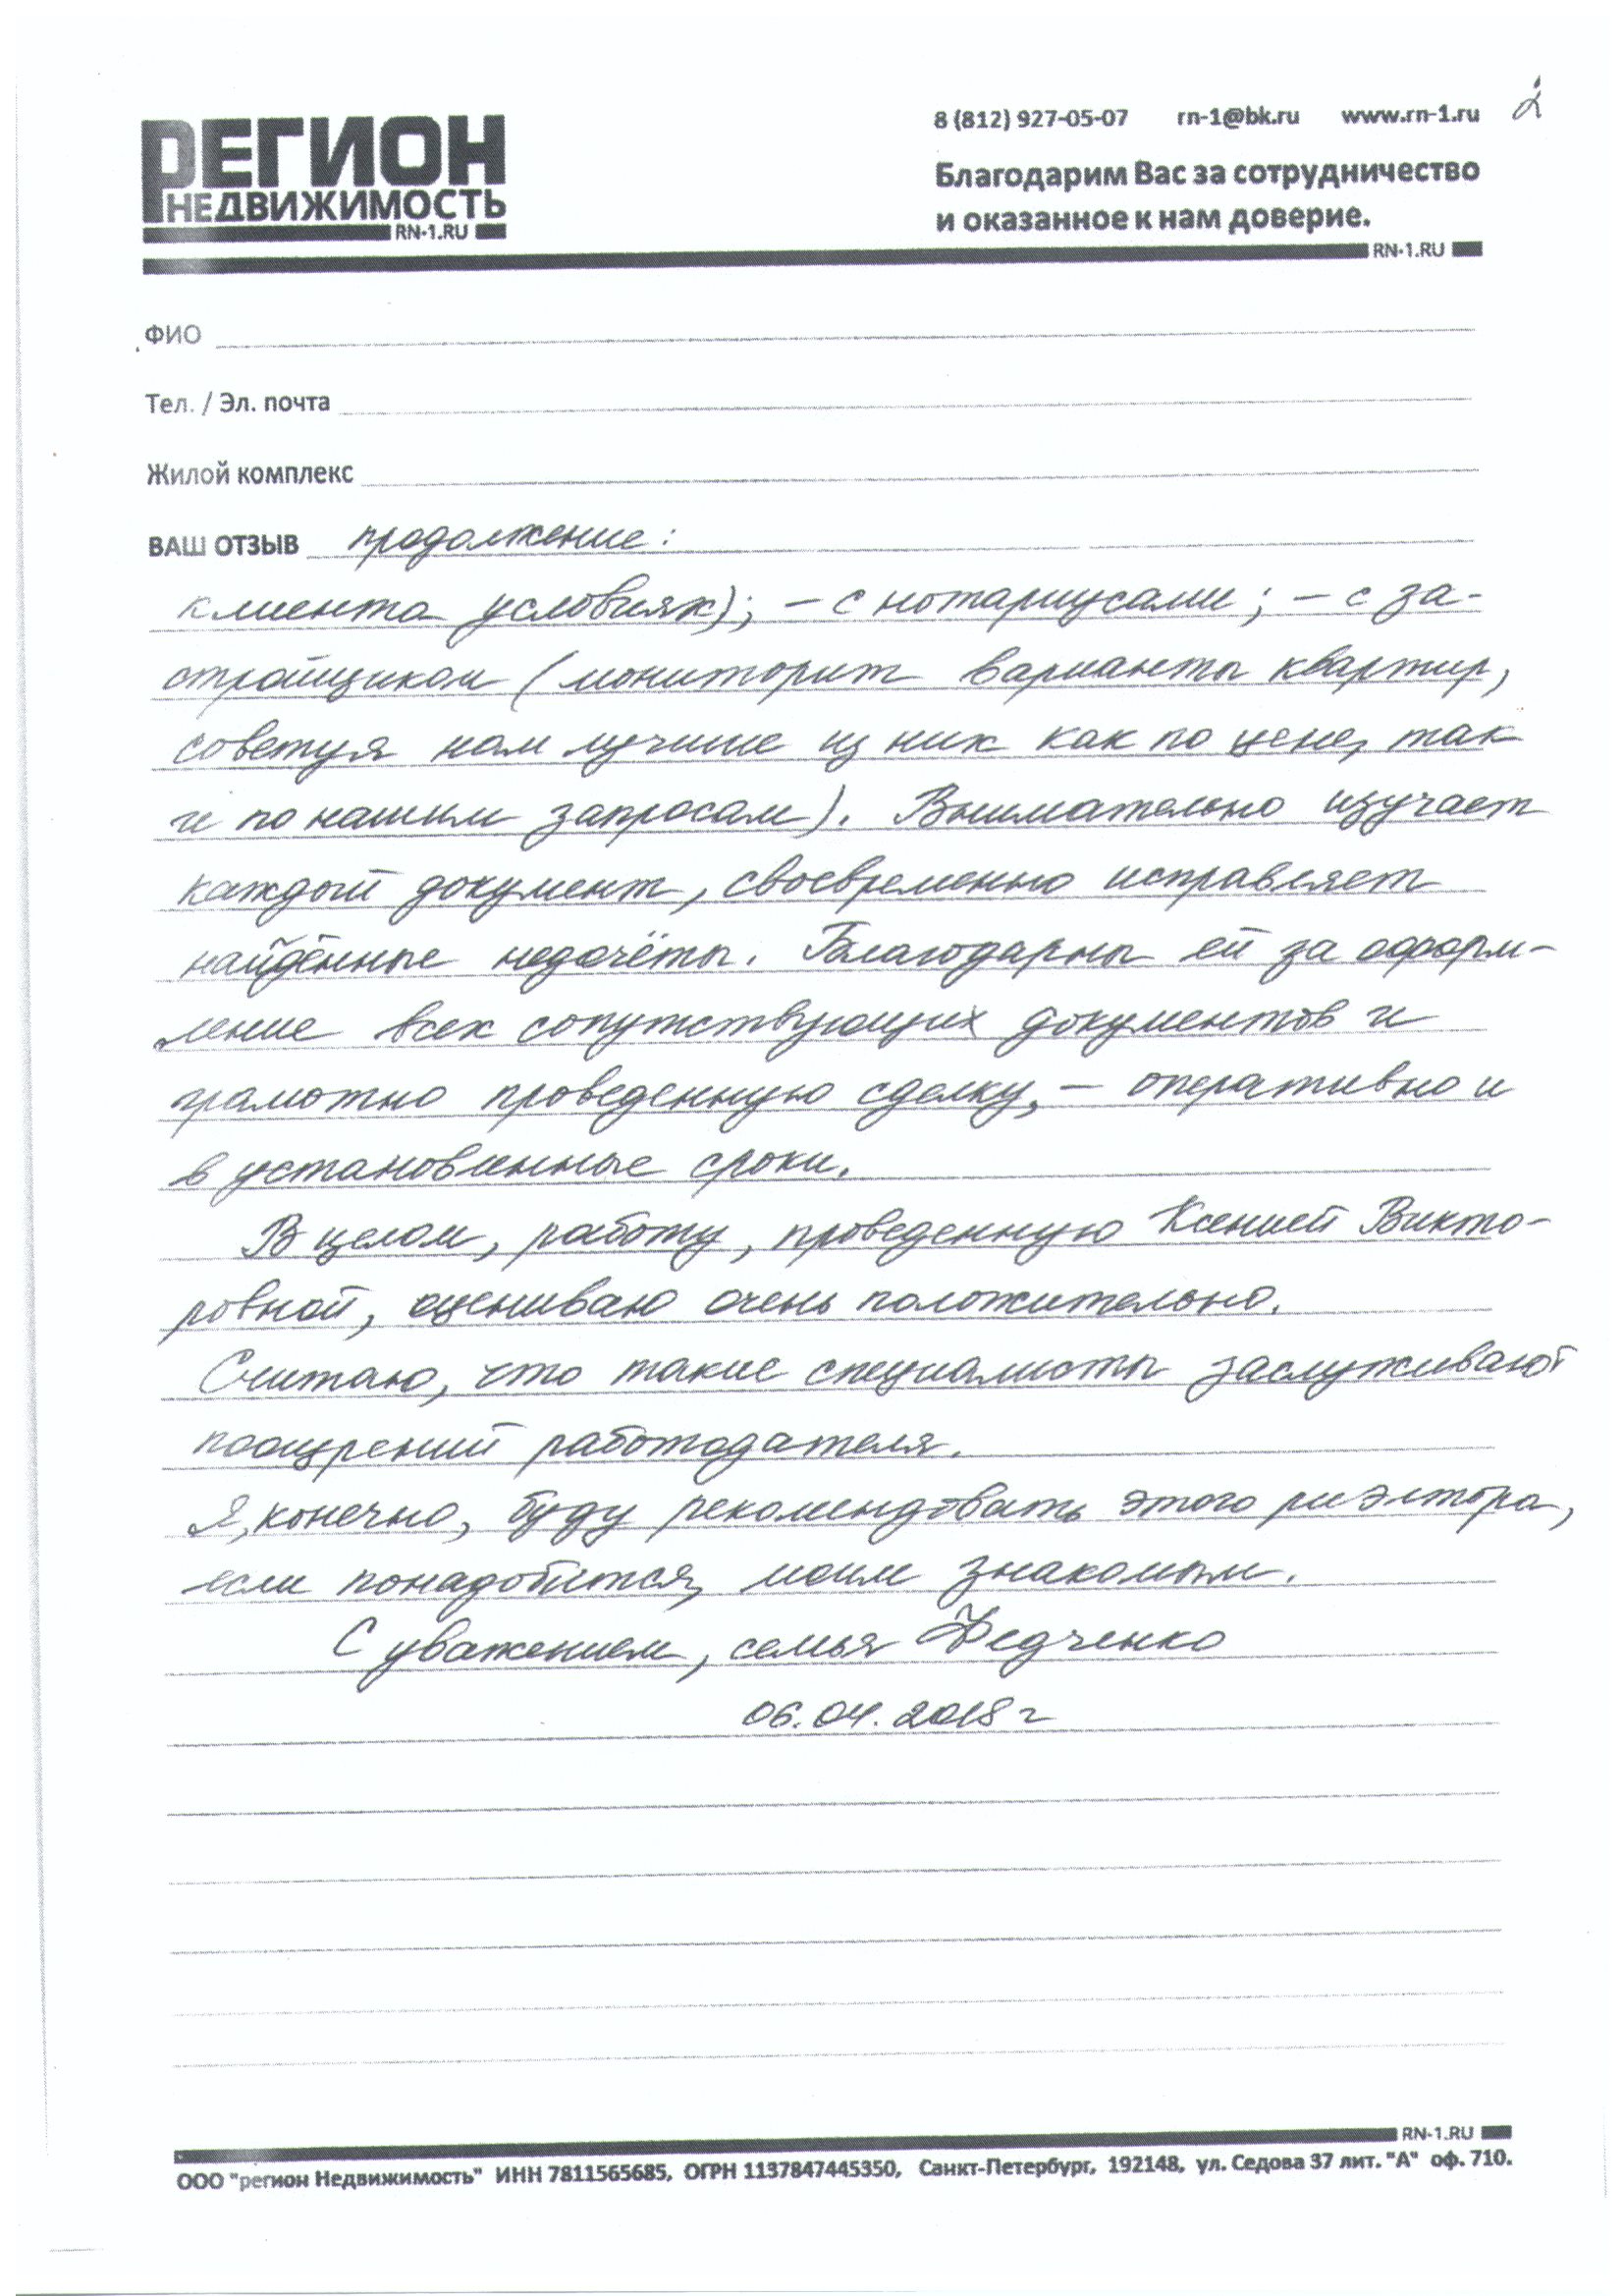 РЕГИОН
НЕДВИЖИМОСТЬ
RN-1.RU
8 (812) 927-05-07 rn-1@bk.ru www.rn-1.ru
2
Благодарим Вас за сотрудничество
и оказанное к нам доверие.
RN-1.RU
ФИО
Тел. / Эл. почта
Жилой комплекс
ВАШ ОТЗЫВ продолжение:
клиента условиях); – с нотариусами; – с за-
стройщиком (мониторит варианты квартир,
советуя нам лучшие из них как по цене, так
и по нашим запросам). Внимательно изучает
каждый документ, своевременно исправляет
найденные недочёты. Благодарны ей за оформ-
ление всех сопутствующих документов и
грамотно проведенную сделку, – оперативно и
в установленные сроки.
В целом, работу, проведенную Ксенией Викто-
ровной, оцениваю очень положительно.
Считаю, что такие специалисты заслуживают
поощрений работодателя.
Я, конечно, буду рекомендовать этого риэлтора,
если понадобится, моим знакомым.
С уважением, семья Федченко
06.04.2018 г
RN-1.RU
ООО "регион Недвижимость" ИНН 7811565685, ОГРН 1137847445350, Санкт-Петербург, 192148, ул. Седова 37 лит. "А" оф. 710.